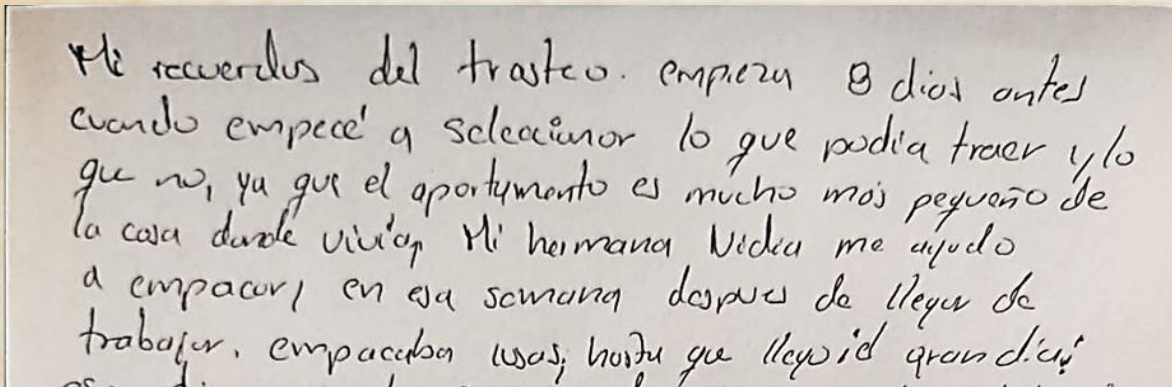 Mi recuerdos del trasteo. empieza 8 dias antes
cuando empecé a seleccionar lo que podía traer y lo
que no, ya que el apartamento es mucho más pequeño de
la casa donde vivía, Mi hermana Nidia me ayudo
a empacar, en esa semana despues de llegar de
trabajar. empacaba cosas, hasta que llego gran día;